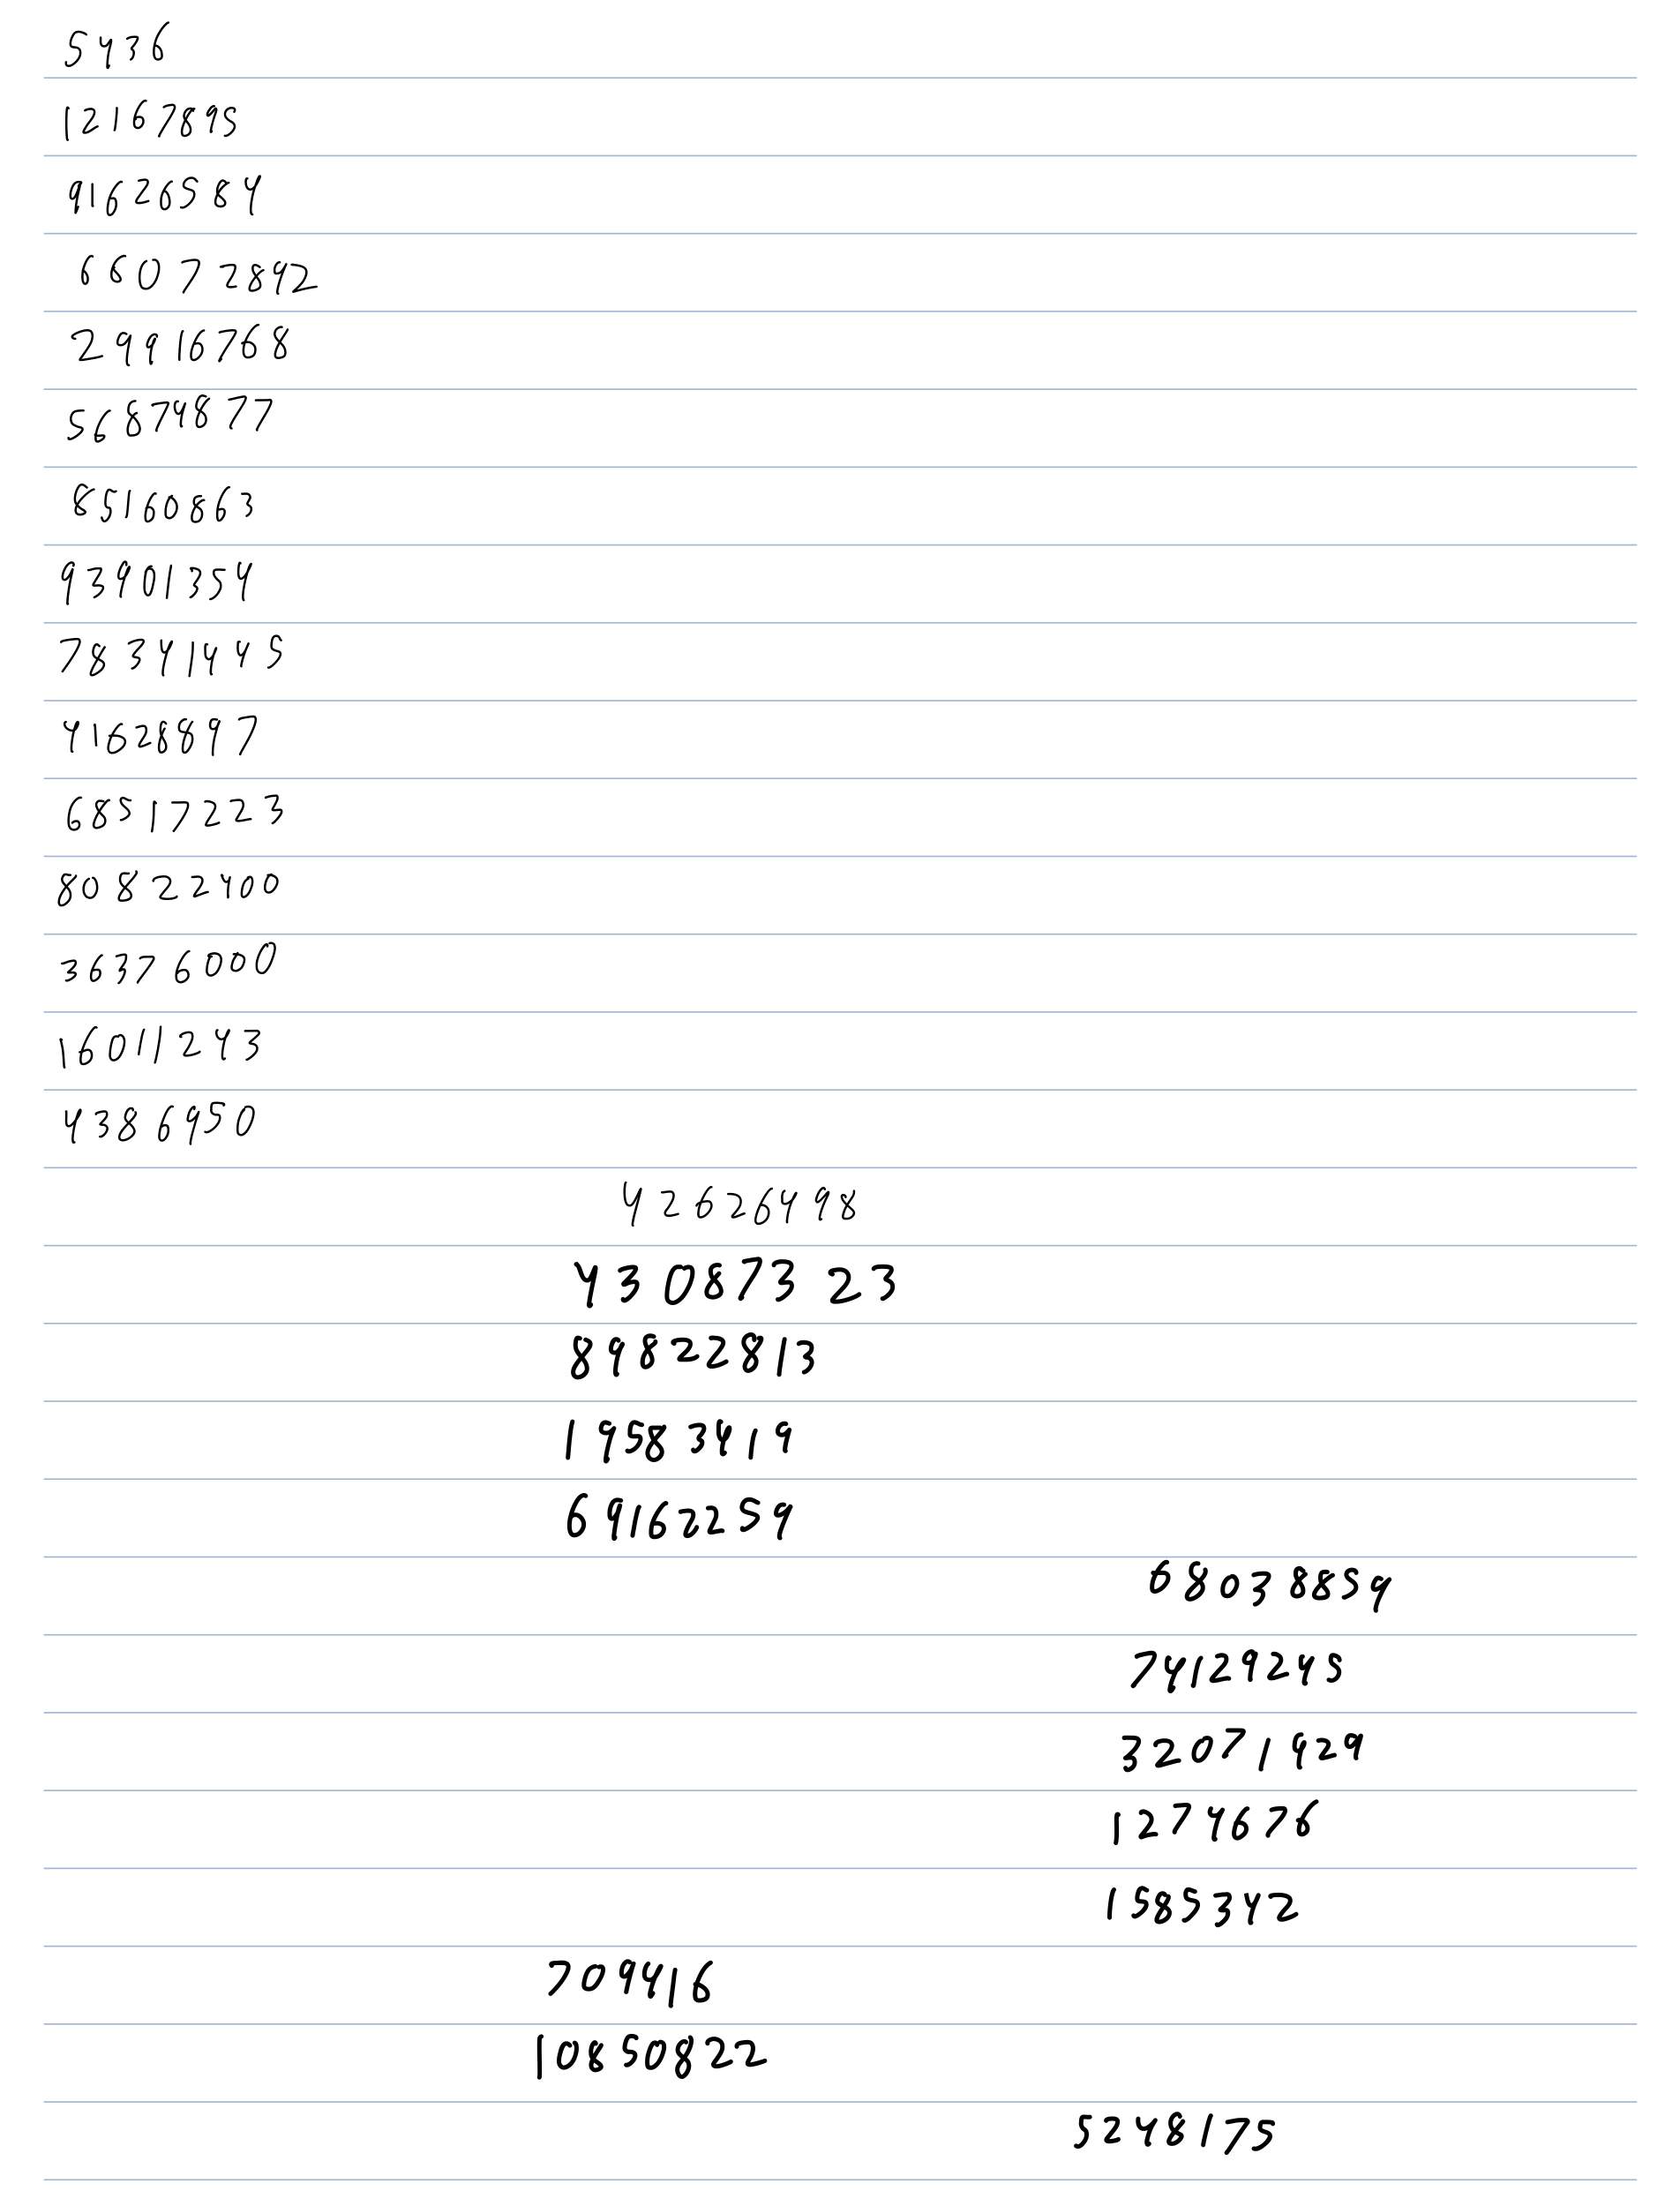 5436
12167895
91626584
660772892
29916768
56874877
85160863
93901354
783411445
41628897
685172223
808222400
363760000
16011243
4386950
42626498
430873 23
898222813
19583419
691622259
68038859
741292495
32071929
1274676
1585342
709416
10850822
5248175